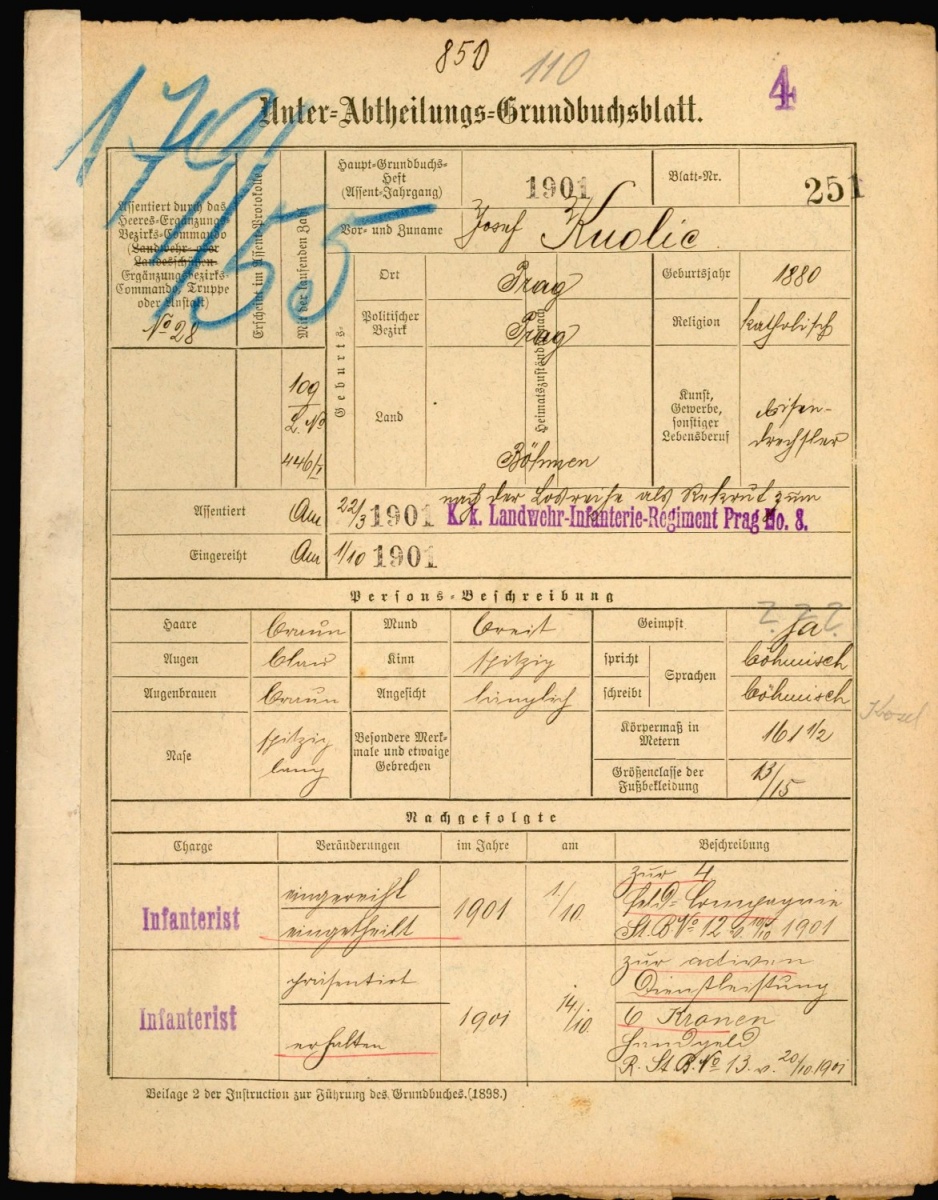 850
110
4
Unter-Abtheilungs-Grundbuchsblatt.
179/155
Assentiert durch das
Heeres-Ergänzungs-
Bezirks-Commando
(Landwehr- oder
Landesschützen-
Ergänzungsbezirks-
Commando, Truppe
oder Anstalt)
No 28
Erscheint im Assent-Protokolle
Mit der laufenden Zahl
109
L. No
446/I
Haupt-Grundbuchs-
Heft
(Assent-Jahrgang)
1901
Blatt-Nr.
251
Vor- und Zuname
Josef Kudlic
Geburts-
Ort
Prag
Politischer
Bezirk
Prag
Land
Böhmen
Heimatszuständig nach
Geburtsjahr
1880
Religion
katholisch
Kunst,
Gewerbe,
sonstiger
Lebensberuf
Eisen-
drechsler
Assentiert
Am 22/3 1901
nach der Losreihe als Rekrut zum
K. k. Landwehr-Infanterie-Regiment Prag No. 8.
Eingereiht
Am 1/10 1901
Persons-Beschreibung
Haare braun
Mund breit
Geimpft ja
? ? ?
Augen blau
Kinn spitzig
spricht
Sprachen
böhmisch
Augenbrauen braun
Angesicht länglich
schreibt
böhmisch
Nase
spitzig
lang
Besondere Merk-
male und etwaige
Gebrechen
Körpermaß in
Metern
161 1/2
Größenclasse der
Fußbekleidung
13/15
Nachgefolgte
Charge Veränderungen im Jahre am Beschreibung
Infanterist
eingereiht
eingetheilt
1901
1/10
zur 4
Feld-Compagnie
St. B. No 12 v. 19/10 1901
Infanterist
präsentirt
erhalten
1901
14/10
zur activen
Dienstleistung
6 Kronen
Handgeld
R. St. B. No 13. v. 20/10 1901
Beilage 2 der Instruction zur Führung des Grundbuches. (1898.)